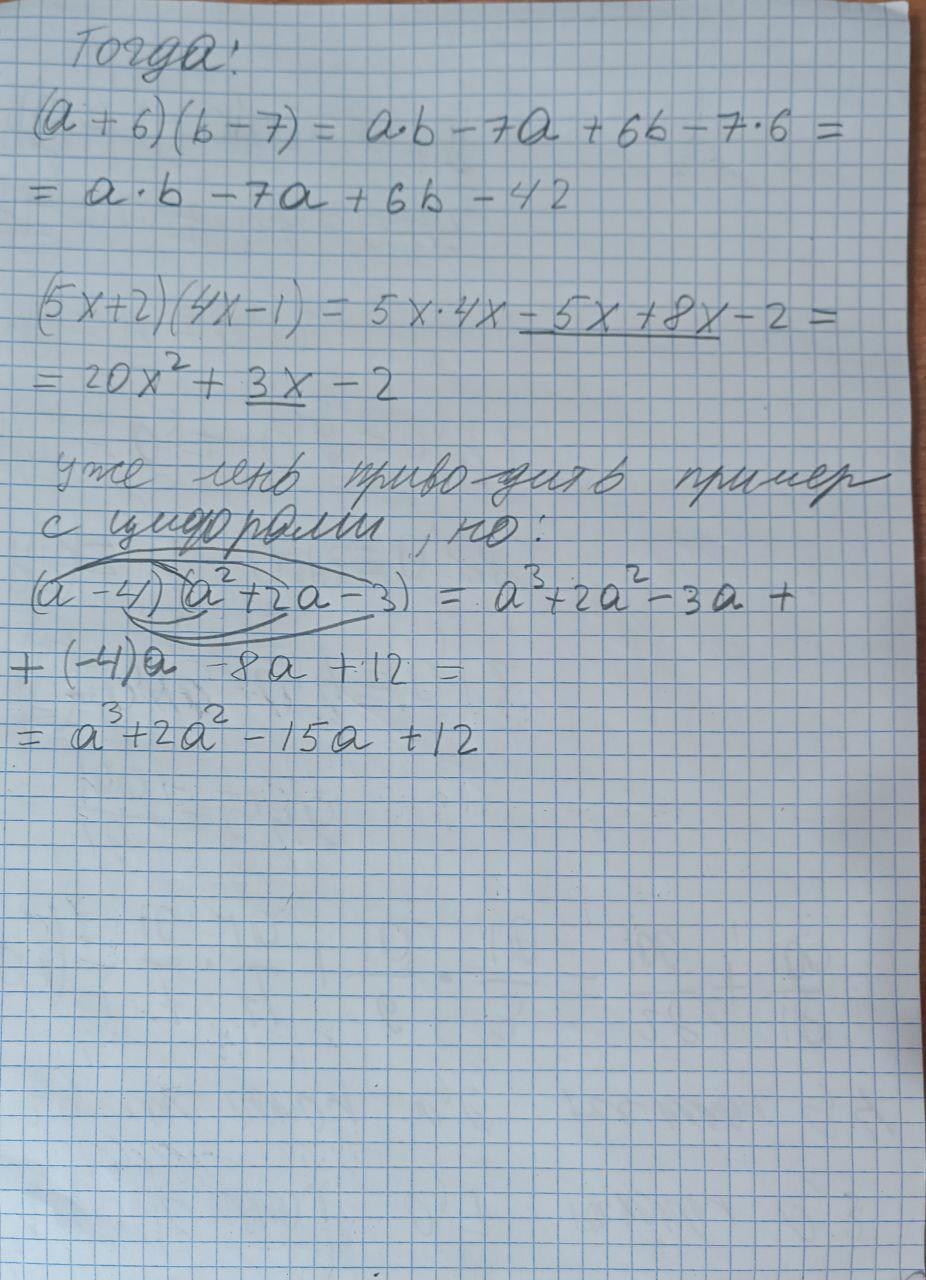 Тогда:
(a + 6)(b - 7) = a·b - 7a + 6b - 7·6 =
= a·b - 7a + 6b - 42
(5x+2)(4x-1) = 5x·4x - 5x + 8x - 2 =
= 20x² + 3x - 2
уже лень приводить пример
с цифрами, но:
(a - 4)(a² + 2a - 3) = a³ + 2a² - 3a +
+ (-4)a - 8a + 12 =
= a³ + 2a² - 15a + 12